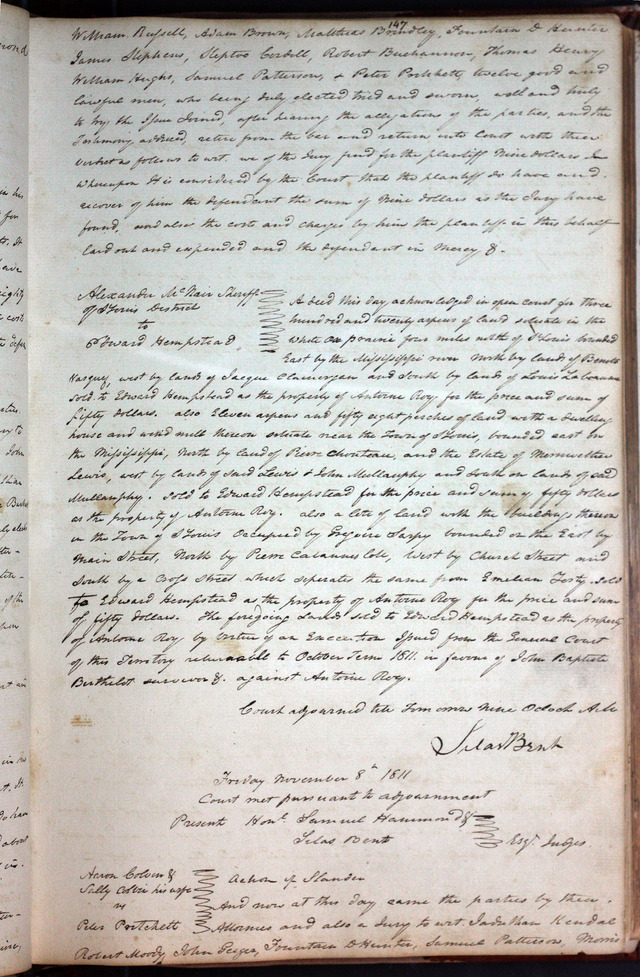 147
William Russell, Adam Brown, Matthias Brindley, Fountain D Hunter
James Stephens, Steptoe Cordell, Robert Buchannon, Thomas Henry
William Hughs, Samuel Patterson, & Peter Pritchett, twelve good and
lawful men, who being duly elected tried and sworn, well and truly
to try the Issue Joined, after hearing the allegations of the parties, and the
Testimony adduced, retire from the bar and return into Court with their
verdict as follows to wit. we of the Jury find for the plantiff Nine dollars
Whereupon It is considered by the Court that the plantiff do have and
recover of him the defendant the sum of Nine dollars as the Jury have
found, and also the costs and charges by him the plantiff in this behalf
laid out and expended and the defendant in Mercy &.
Alexander McNair Sheriff
of St Louis District
to
Edward Hempstead
A deed this day acknowledged in open court for three
hundred and twenty arpens of land situate in the
White Ox prairie four miles north of St Louis bounded
East by the Mississippi river North by lands of Benoit
Vasquez, west by lands of Jacque Clamorgan and South by lands of Louis Labeaume
sold to Edward Hempstead as the property of Antoine Roy for the price and sum of
fifty dollars. also Eleven arpens and fifty eight perches of land with a dwelling
house and wind mill thereon situate near the Town of St Louis, bounded east on
the Mississippi, North by land of Pierre Chouteau, and the Estate of Merriwether
Lewis, west by lands of said Lewis & John Mullanphy and South on lands of said
Mullanphy. sold to Edward Hempstead for the price and sum of fifty dollars
as the property of Antoine Roy. also a lot of land with the buildings thereon
in the Town of St Louis Occupied by Gregoire Sarpy bounded on the East by
Main Street, North by Pierre Cabannes lott, West by Church Street and
South by a Cross Street which seperates the same from Emilian Yosty sold
to Edward Hempstead as the property of Antoine Roy for the price and sum
of fifty dollars. The foregoing Lands sold to Edward Hempstead as the property
of Antoine Roy by virtue of an Execution Issued from the General Court
of this Territory returnable to October Term 1811. in favour of John Baptiste
Berthelot survivor &. against Antoine Roy.
Court adjourned till Tomorrow Nine Oclock A.M
Silas Bent
Friday November 8th 1811
Court met pursuant to adjournment
Present Honl. Samuel Hammond &
Silas Bent
Esqr. Judges
Aaron Colvin &
Sally Colvin his wife
vs
Peter Pritchett
Action of Slander
And now at this day came the parties by their
Attornies and also a Jury to wit. Jaduthan Kendal
Robert Moody, John Geiger, Fountain D Hunter, Samuel Patterson, Morris